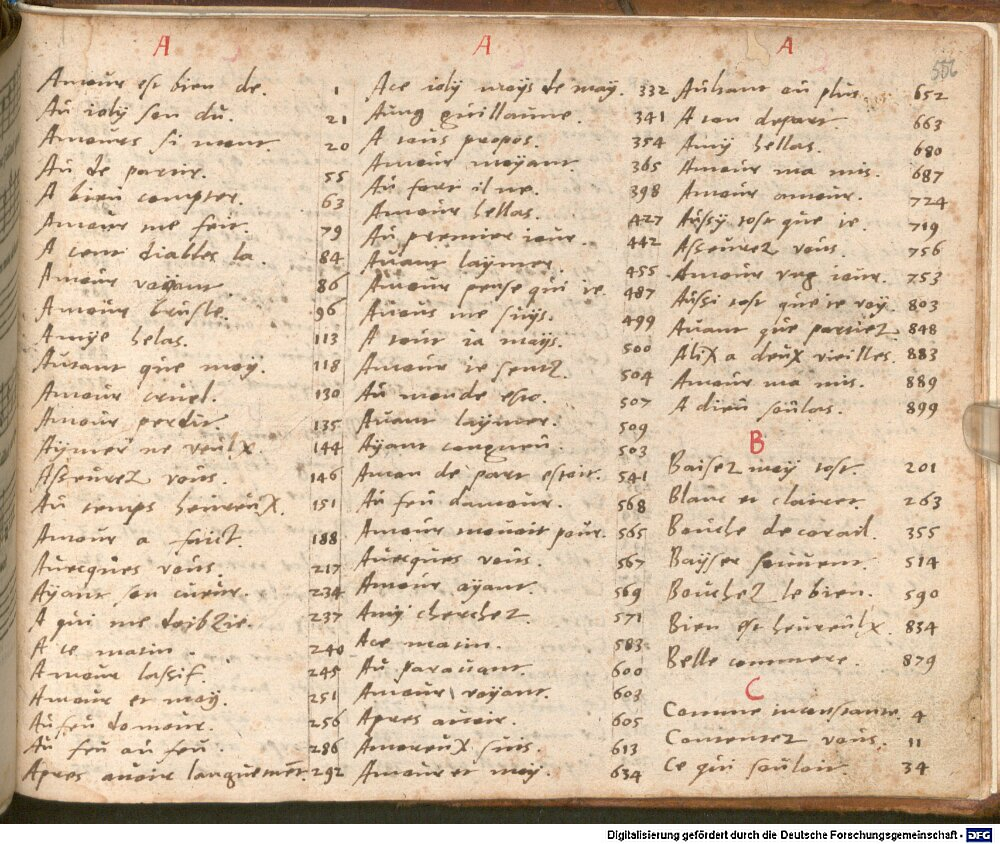 A
Amour est bien de. 1
Au ioly son du. 21
Amours si mont 20
Au de partir. 55
A bien compter. 63
Amour me feit. 79
A cent diables la. 84
Amour voyant 86
Amour brusle. 96
Amye helas. 113
Autant que moy. 118
Amour cruel. 130
Amour perdit. 135
Aymer ne veulx. 144
Asseurez vous. 146
Au temps heureux. 151
Amour a faict. 188
Avecques vous. 217
Ayant son cueur. 234
A qui me 237
A ce matin. 240
Amour lassif. 245
Amour et moy. 251
Au feu damour. 256
Au feu au feu. 286
Apres avoir languement. 292
A
Ace ioly moys de may. 332
Aung guillaume. 341
A tous propos. 354
Amour moyant 365
Au fort il ne. 398
Amour hellas. 427
Au premier iour. 442
Avant laymer. 455
Amour pense qui ie. 487
Avous me suys. 499
A tout ia mays. 500
Amour ie sentz. 504
Au monde esto. 507
Avant laymer. 509
Ayant congneu. 503
Amon de part estoit. 541
Au feu damour. 568
Amour mouoit pour. 565
Avecques vous. 567
Amour ayant. 569
Amy cherchez. 571
Ace matin. 583
Au paravant. 600
Amour voyant. 603
Apres avoir. 605
Amoreux suis. 613
Amour et moy. 634
A
556
Aultant ou plus. 652
A ton depart. 663
Amy hellas. 680
Amour ma mis. 687
Amour amour. 724
Aussy tost que ie. 719
Asseurez vous 756
Amour ung iour. 753
Aussi tost que ie voy. 803
Avant que partiez. 848
Alix a deux vieilles. 883
Amour ma mis. 889
A dieu soulas. 899
B
Baisez moy tost 201
Blanc et clairet. 263
Bouche de corail. 355
Bayser souvent. 514
Bouchez le bien. 590
Bien est heureulx. 834
Belle commere. 879
C
Comme inconstante. 4
Contentez vous. 11
Ce qui souloit 34
Digitalisierung gefördert durch die Deutsche Forschungsgemeinschaft - DFG